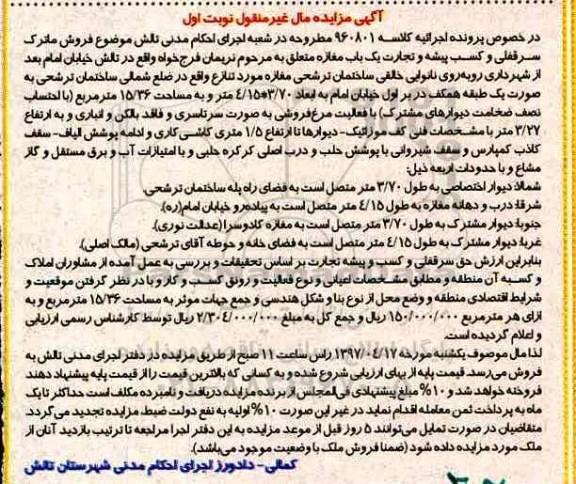 آگهی مزایده مال غیرمنقول نوبت اول
در خصوص پرونده اجرائیه کلاسه ۹۶۰۸۰۱ مطروحه در شعبه اجرای احکام مدنی تالش موضوع فروش ماترک
سرقفلی و کسب پیشه و تجارت یک باب مغازه متعلق به مرحوم نریمان فرج‌خواه واقع در تالش خیابان امام بعد
از شهرداری روبه‌روی نانوایی خالقی ساختمان ترشحی مغازه مورد تنازع واقع در ضلع شمالی ساختمان ترشحی به
صورت یک طبقه همکف در بر اول خیابان امام به ابعاد ۳/۷۰*۴/۱۵ متر و به مساحت ۱۵/۳۶ مترمربع (با احتساب
نصف ضخامت دیوارهای مشترک) با فعالیت مرغ‌فروشی به صورت سرتاسری و فاقد بالکن و انباری و به ارتفاع
۳/۲۷ متر با مشخصات فنی کف موزائیک- دیوارها تا ارتفاع ۱/۵ متری کاشی‌کاری و ادامه پوشش الیاف- سقف
کاذب کمپارس و سقف شیروانی با پوشش حلب و درب اصلی کرکره حلبی و با امتیازات آب و برق مستقل و گاز
مشاع و با حدودات اربعه ذیل:
شمالا: دیوار اختصاصی به طول ۳/۷۰ متر متصل است به فضای راه پله ساختمان ترشحی.
شرقا: درب و دهانه مغازه به طول ۴/۱۵ متر متصل است به پیاده‌رو خیابان امام(ره).
جنوبا: دیوار مشترک به طول ۳/۷۰ متر متصل است به مغازه کادوسرا(عدالت نوری).
غربا: دیوار مشترک به طول ۴/۱۵ متر متصل است به فضای خانه و حوطه آقای ترشحی (مالک اصلی).
بنابراین ارزش حق سرقفلی و کسب و پیشه تجارت بر اساس تحقیقات و بررسی به عمل آمده از مشاوران املاک
و کسبه آن منطقه و مطابق مشخصات اعیانی و نوع فعالیت و رونق کسب و کار و با در نظر گرفتن موقعیت و
شرایط اقتصادی منطقه و وضع محل از نوع بنا و شکل هندسی و جمع جهات موثر به مساحت ۱۵/۳۶ مترمربع و به
ازای هر مترمربع ۱۵۰/۰۰۰/۰۰۰ ریال و جمع کل به مبلغ ۲/۳۰۴/۰۰۰/۰۰۰ ریال توسط کارشناس رسمی ارزیابی
و اعلام گردیده است.
لذا مال موصوف یکشنبه مورخه ۱۳۹۷/۰۴/۱۷ راس ساعت ۱۱ صبح از طریق مزایده در دفتر اجرای مدنی تالش به
فروش می‌رسد. قیمت پایه از بهای ارزیابی شروع شده و به کسانی که بالاترین قیمت را از قیمت پایه پیشنهاد دهند
فروخته خواهد شد و ۱۰% مبلغ پیشنهادی فی‌المجلس از برنده مزایده دریافت و نامبرده مکلف است حداکثر تا یک
ماه به پرداخت ثمن معامله اقدام نماید در غیر این صورت ۱۰% اولیه به نفع دولت ضبط مزایده تجدید می‌گردد.
متقاضیان در صورت تمایل می‌توانند ۵ روز قبل از موعد مزایده به این دفتر اجرا مراجعه تا ترتیب بازدید آنان از
ملک مورد مزایده داده شود (ضمنا فروش ملک با وضعیت موجود می‌باشد).
کمالی- دادورز اجرای احکام مدنی شهرستان تالش